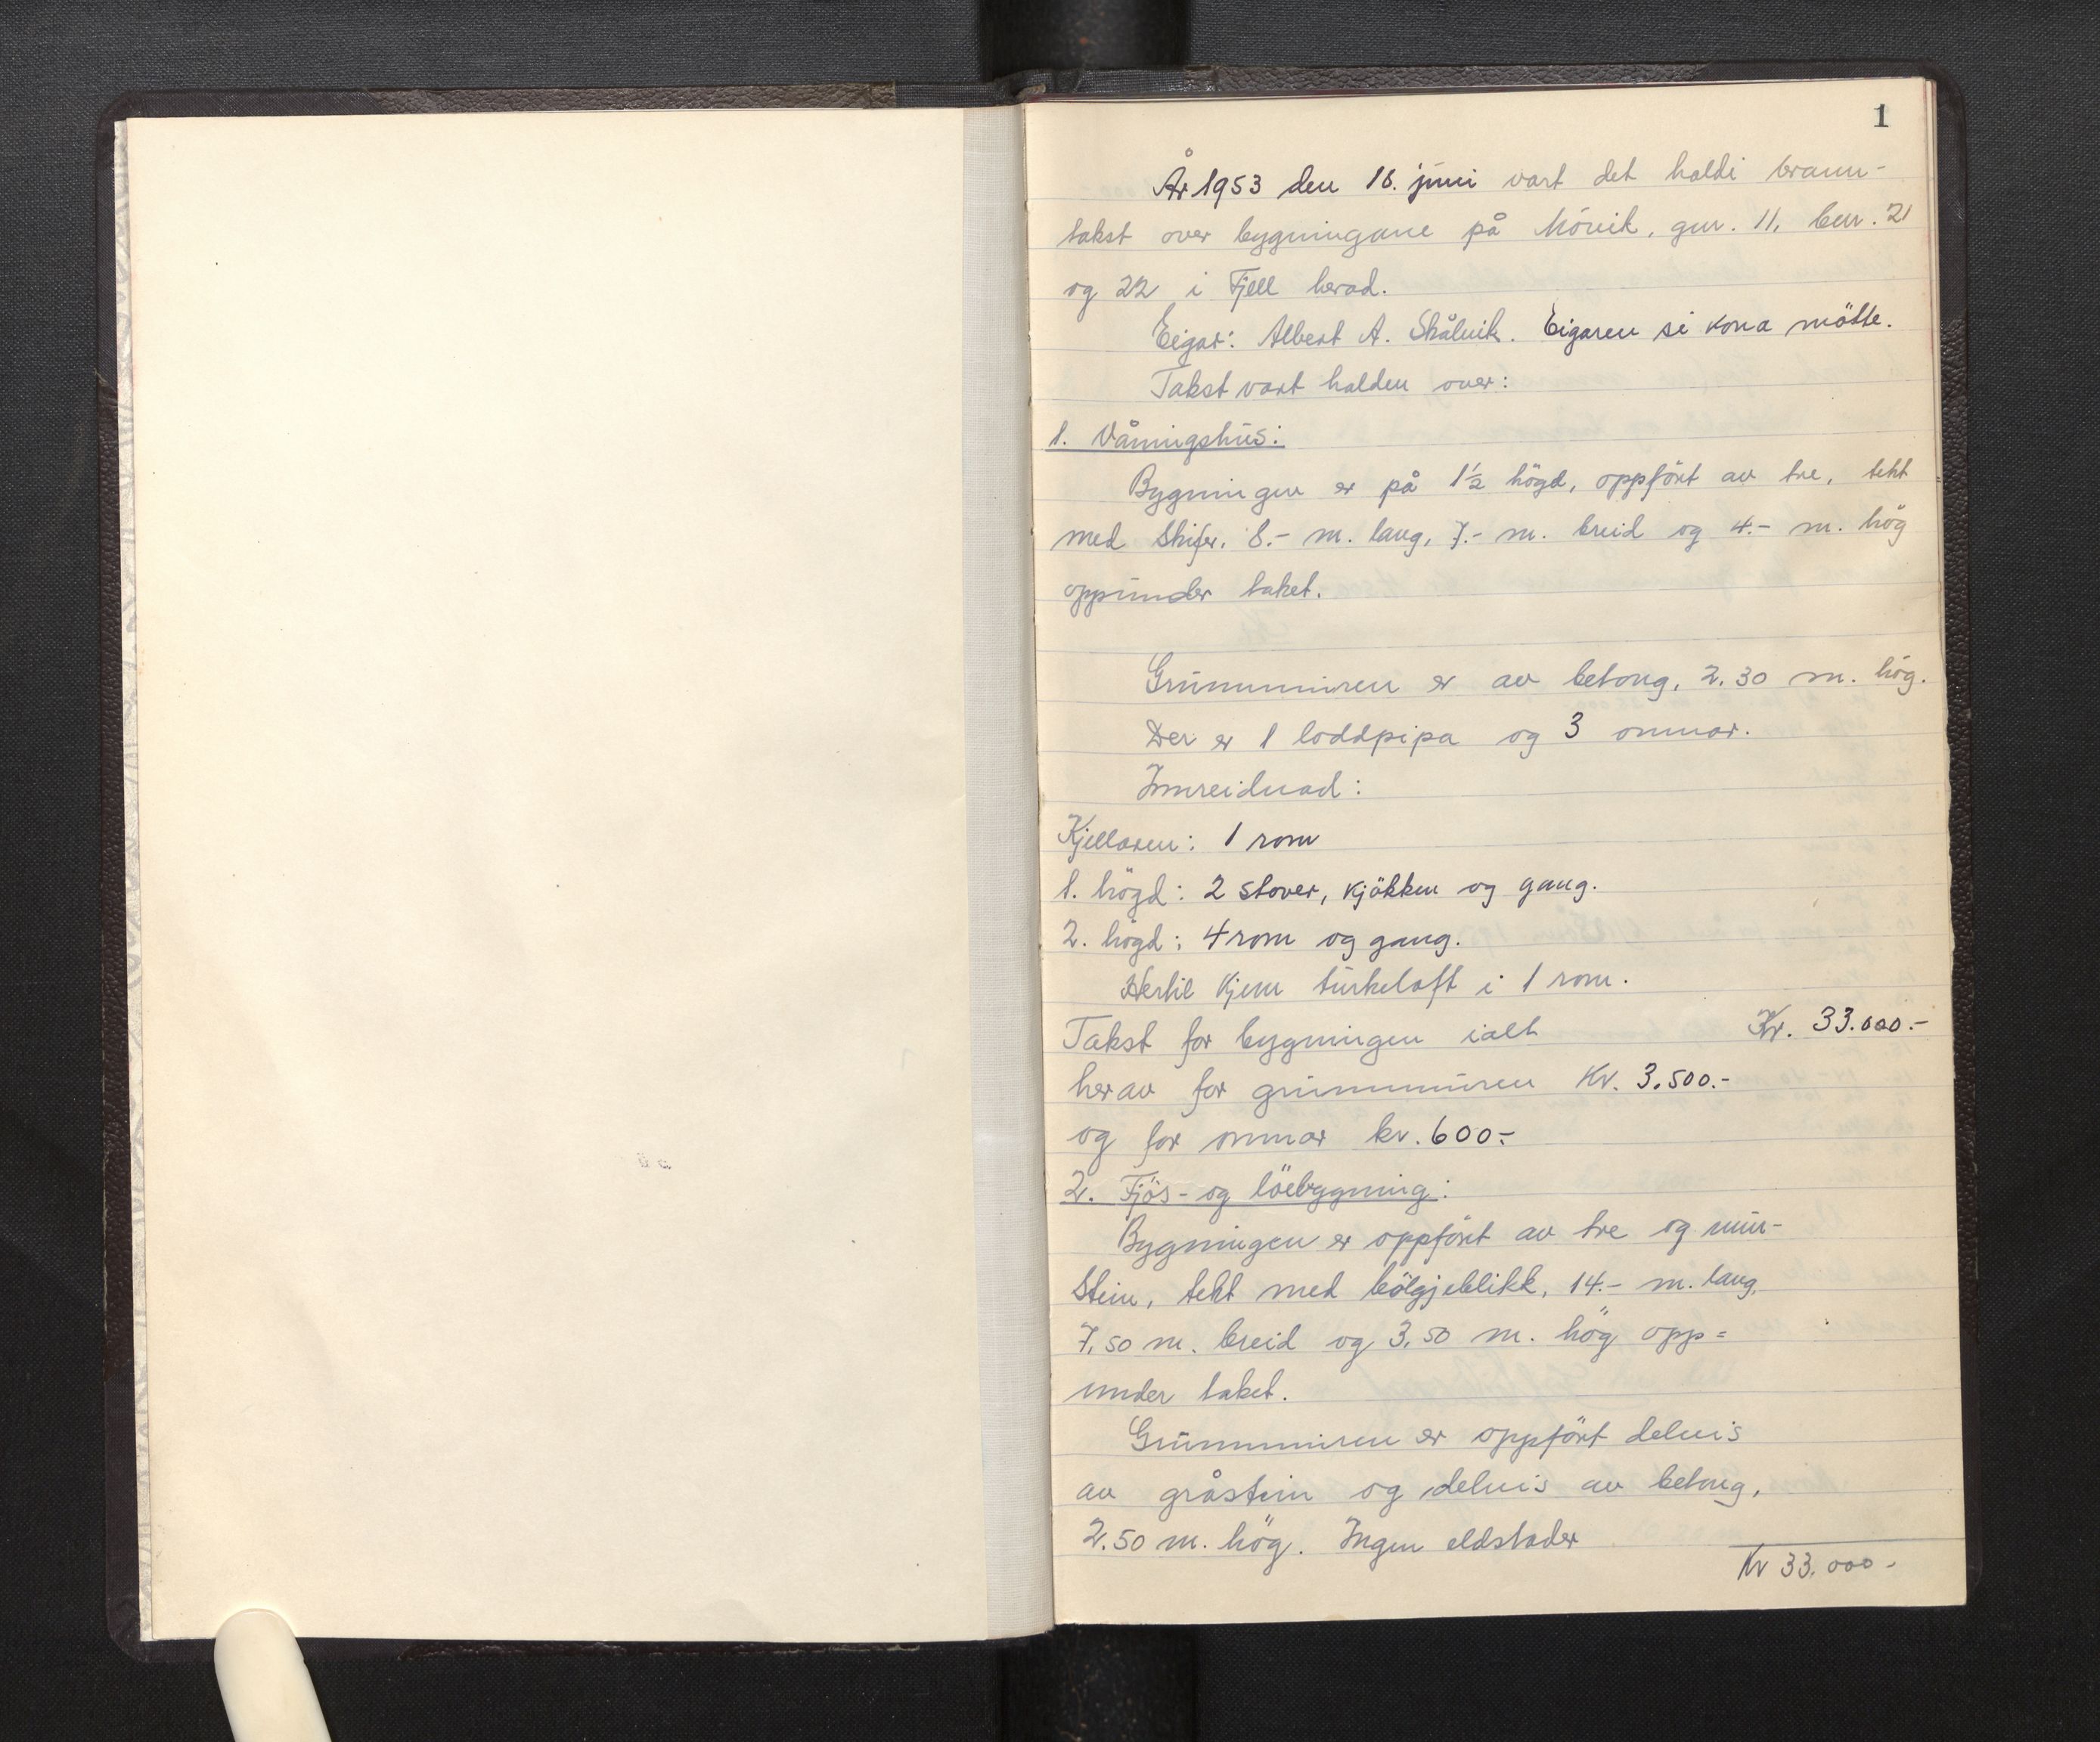 1
År 1953 den 16. juni vart det haldi brann-
takst over bygningane på Mövik, gnr. 11, bnr. 21
og 22 i Fjell herad.
Eigar: Albert A. Skålvik. Eigaren si kona mötte.
Takst vart halden over:
1. Våningshus:
Bygningen er på 1½ högd, oppfört av tre, tekt
med skifer. 8.- m. lang, 7.- m. breid og 4.- m. hög
oppunder taket.
Grunnmuren er av betong, 2.30 m. hög.
Der er 1 loddpipa og 3 omnar.
Innreidnad:
Kjellaren: 1 rom
1. högd: 2 stover, kjökken og gang.
2. högd: 4 rom og gang.
Hertil kjem turkeloft i 1 rom.
Takst for bygningen ialt Kr. 33.000.-
herav for grunnmuren Kr. 3.500.-
og for omnar kr. 600.-
2. Fjös- og löebygning:
Bygningen er oppfört av tre og mur-
stein, tekt med bölgjeblikk, 14.- m. lang,
7,50 m. breid og 3,50 m. hög opp=
under taket.
Grunnmuren er oppfört delvis
av gråstein og delvis av betong,
2.50 m. hög. Ingen eldstader
Kr 33.000-